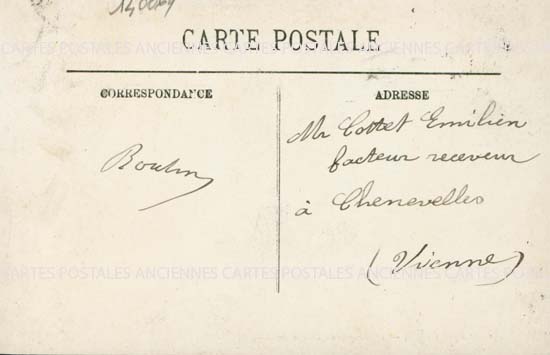 CARTE POSTALE
CORRESPONDANCE
ADRESSE
Mr Cottet Emilien
facteur receveur
à Chenevelles
(Vienne)
CARTES POSTALES ANCIENNES CARTES POSTALES ANCIENNES
CARTES POSTALES ANCIENNES CARTES POSTALES